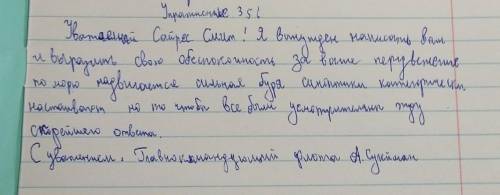 Упражнение 351
Уважаемый Сайрес Смит! Я вынужден написать вам
и выразить свою обеспокоюность за выше
по морю надвигается сильная буря синоптики категорически
настаивают на то чтобы все были жду
скорейшего ответа.
С уважением, Главнокомандующий флота А.